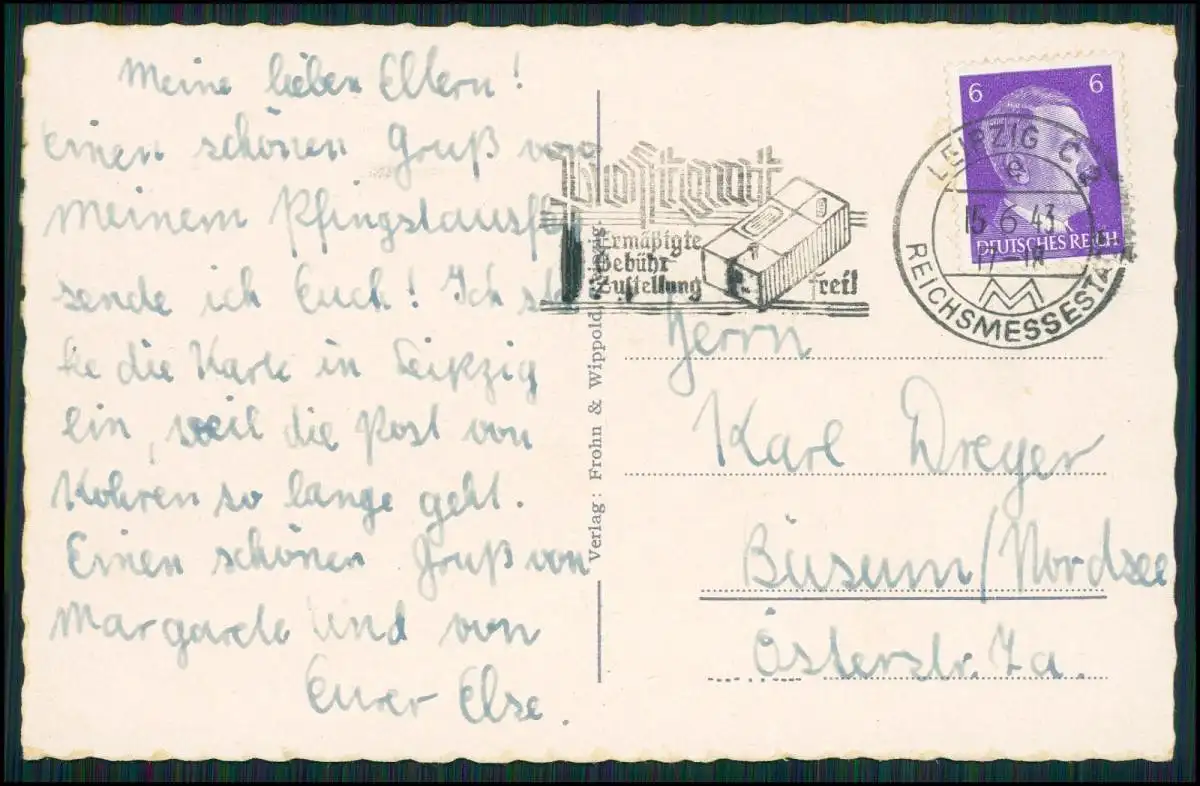 Meine lieben Eltern!
Einen schönen Gruß von
meinem Pfingstausfl
sende ich Euch! Ich stek
ke die Karte in Leipzig
ein, weil die Post von
Kohren so lange geht.
Einen schönen Gruß von
Margarete und von
Eurer Else.
Verlag: Frohn & Wippold, Leipzig.
Postgut
Ermäßigte
Gebühr
Zustellung frei!
6 6
DEUTSCHES REICH
LEIPZIG C2
e
15.6.43
17-18
REICHSMESSESTADT
Herrn
Karl Dreyer
Büsum/Nordsee
Österstr. 7a.